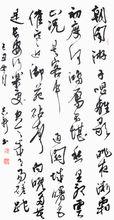 朝闻游子唱离歌昨夜微霜
初度河鸿雁不堪愁里听云
山况是客中过关城曙色
催寒近御苑砧声向晚多莫
见长安行乐处空令岁月易蹉跎